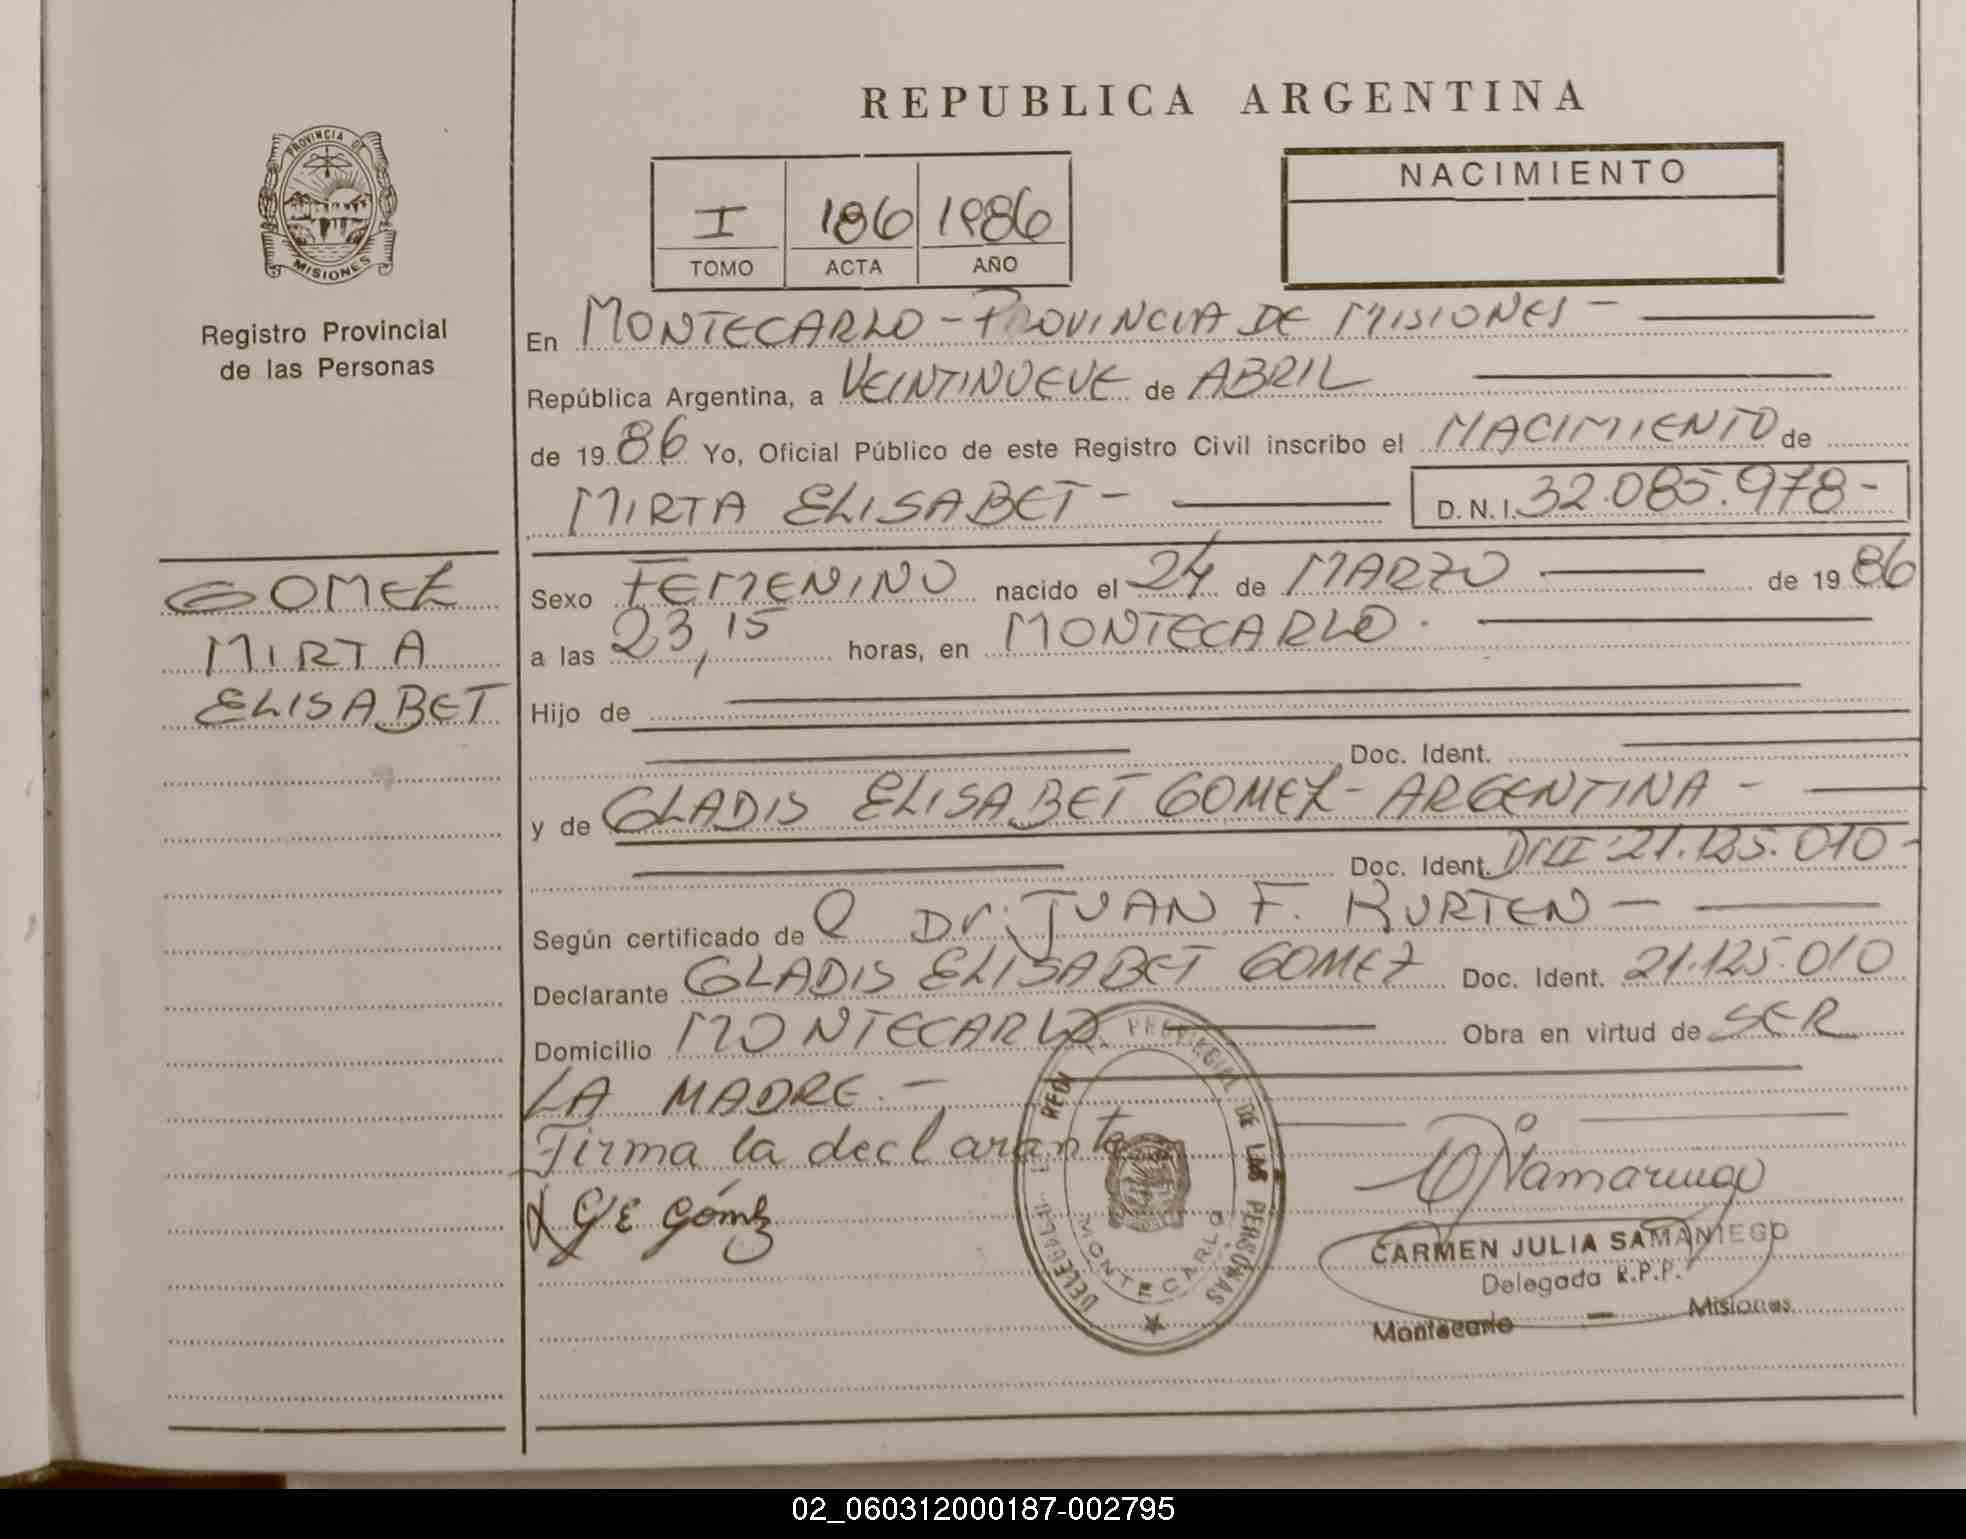 REPUBLICA ARGENTINA
PROVINCIA DE
MISIONES
Registro Provincial
de las Personas
I 186 1986
TOMO ACTA AÑO
NACIMIENTO
En MONTECARLO - PROVINCIA DE MISIONES -
República Argentina, a VEINTINUEVE de ABRIL
de 19 86 Yo, Oficial Público de este Registro Civil inscribo el NACIMIENTO de
MIRTA ELISABET - D.N.I. 32.085.978 -
GOMEZ
MIRTA
ELISABET
Sexo FEMENINO nacido el 24 de MARZO de 19 86
a las 23,15 horas, en MONTECARLO.
Hijo de
Doc. Ident.
y de GLADIS ELISABET GOMEZ - ARGENTINA -
Doc. Ident. DNI 21.125.010 -
Según certificado de Dr. JUAN F. BURTEN -
Declarante GLADIS ELISABET GOMEZ Doc. Ident. 21.125.010
Domicilio MONTECARLO Obra en virtud de SER
LA MADRE. -
Firma la declarante
G E Gómez
PROVINCIAL DE LAS PERSONAS
MONTECARLO
CARMEN JULIA SAMANIEGO
Delegada R.P.P.
Montecarlo - Misiones
02_060312000187-002795